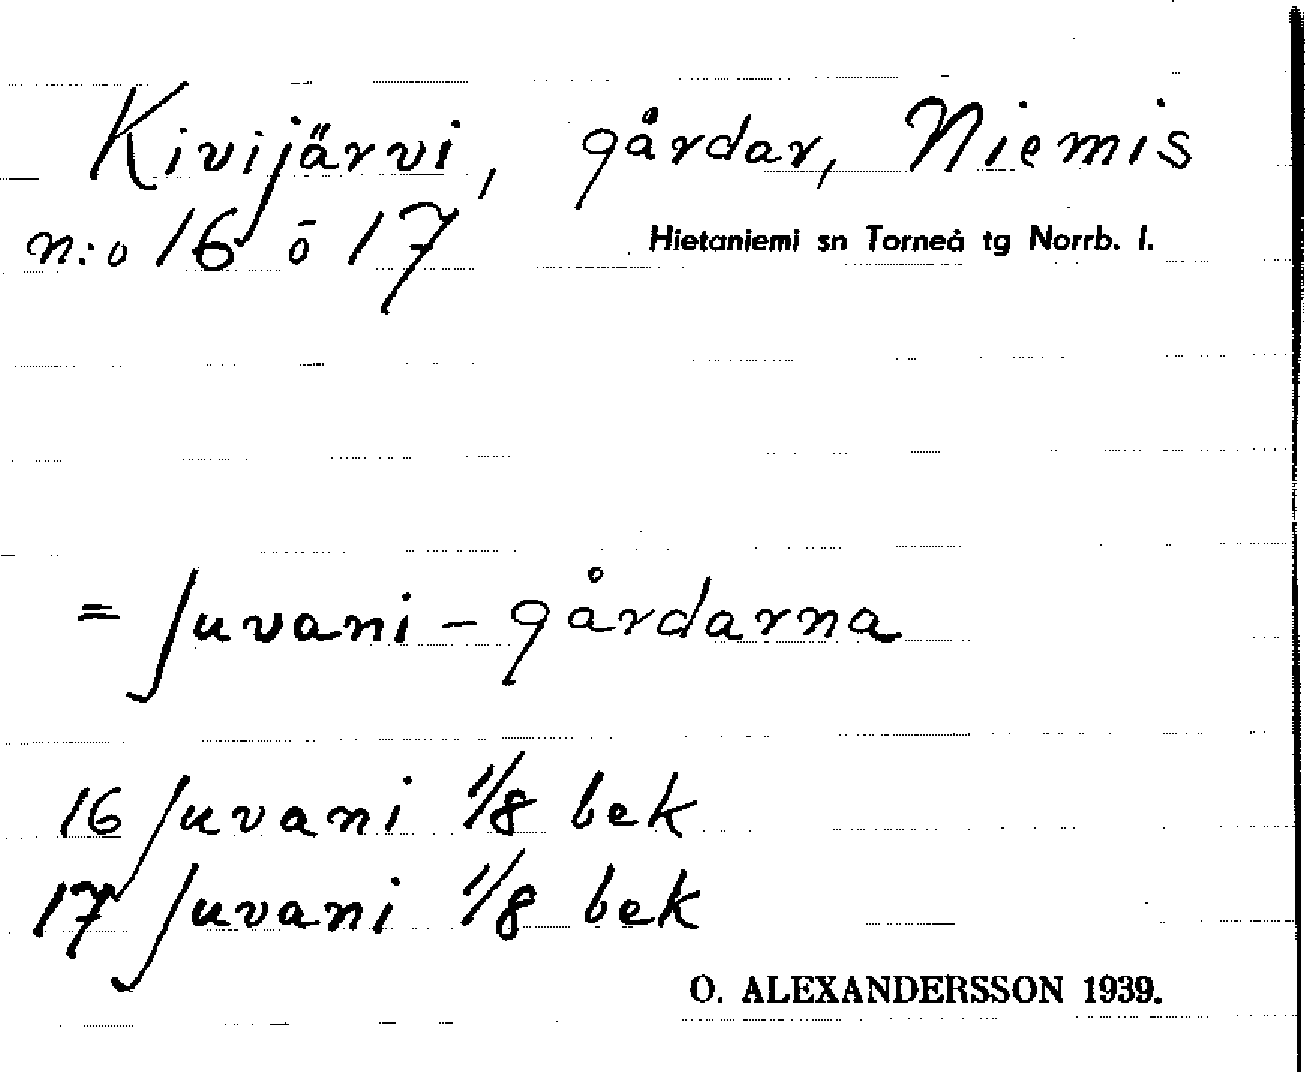 Kivijärvi, gårdar, Niemis
n:o 16 o 17 Hietaniemi sn Torneå tg Norrb. l.
= Juvani - gårdarna
16 Juvani 1/8 bek
17 Juvani 1/8 bek
O. ALEXANDERSSON 1939.